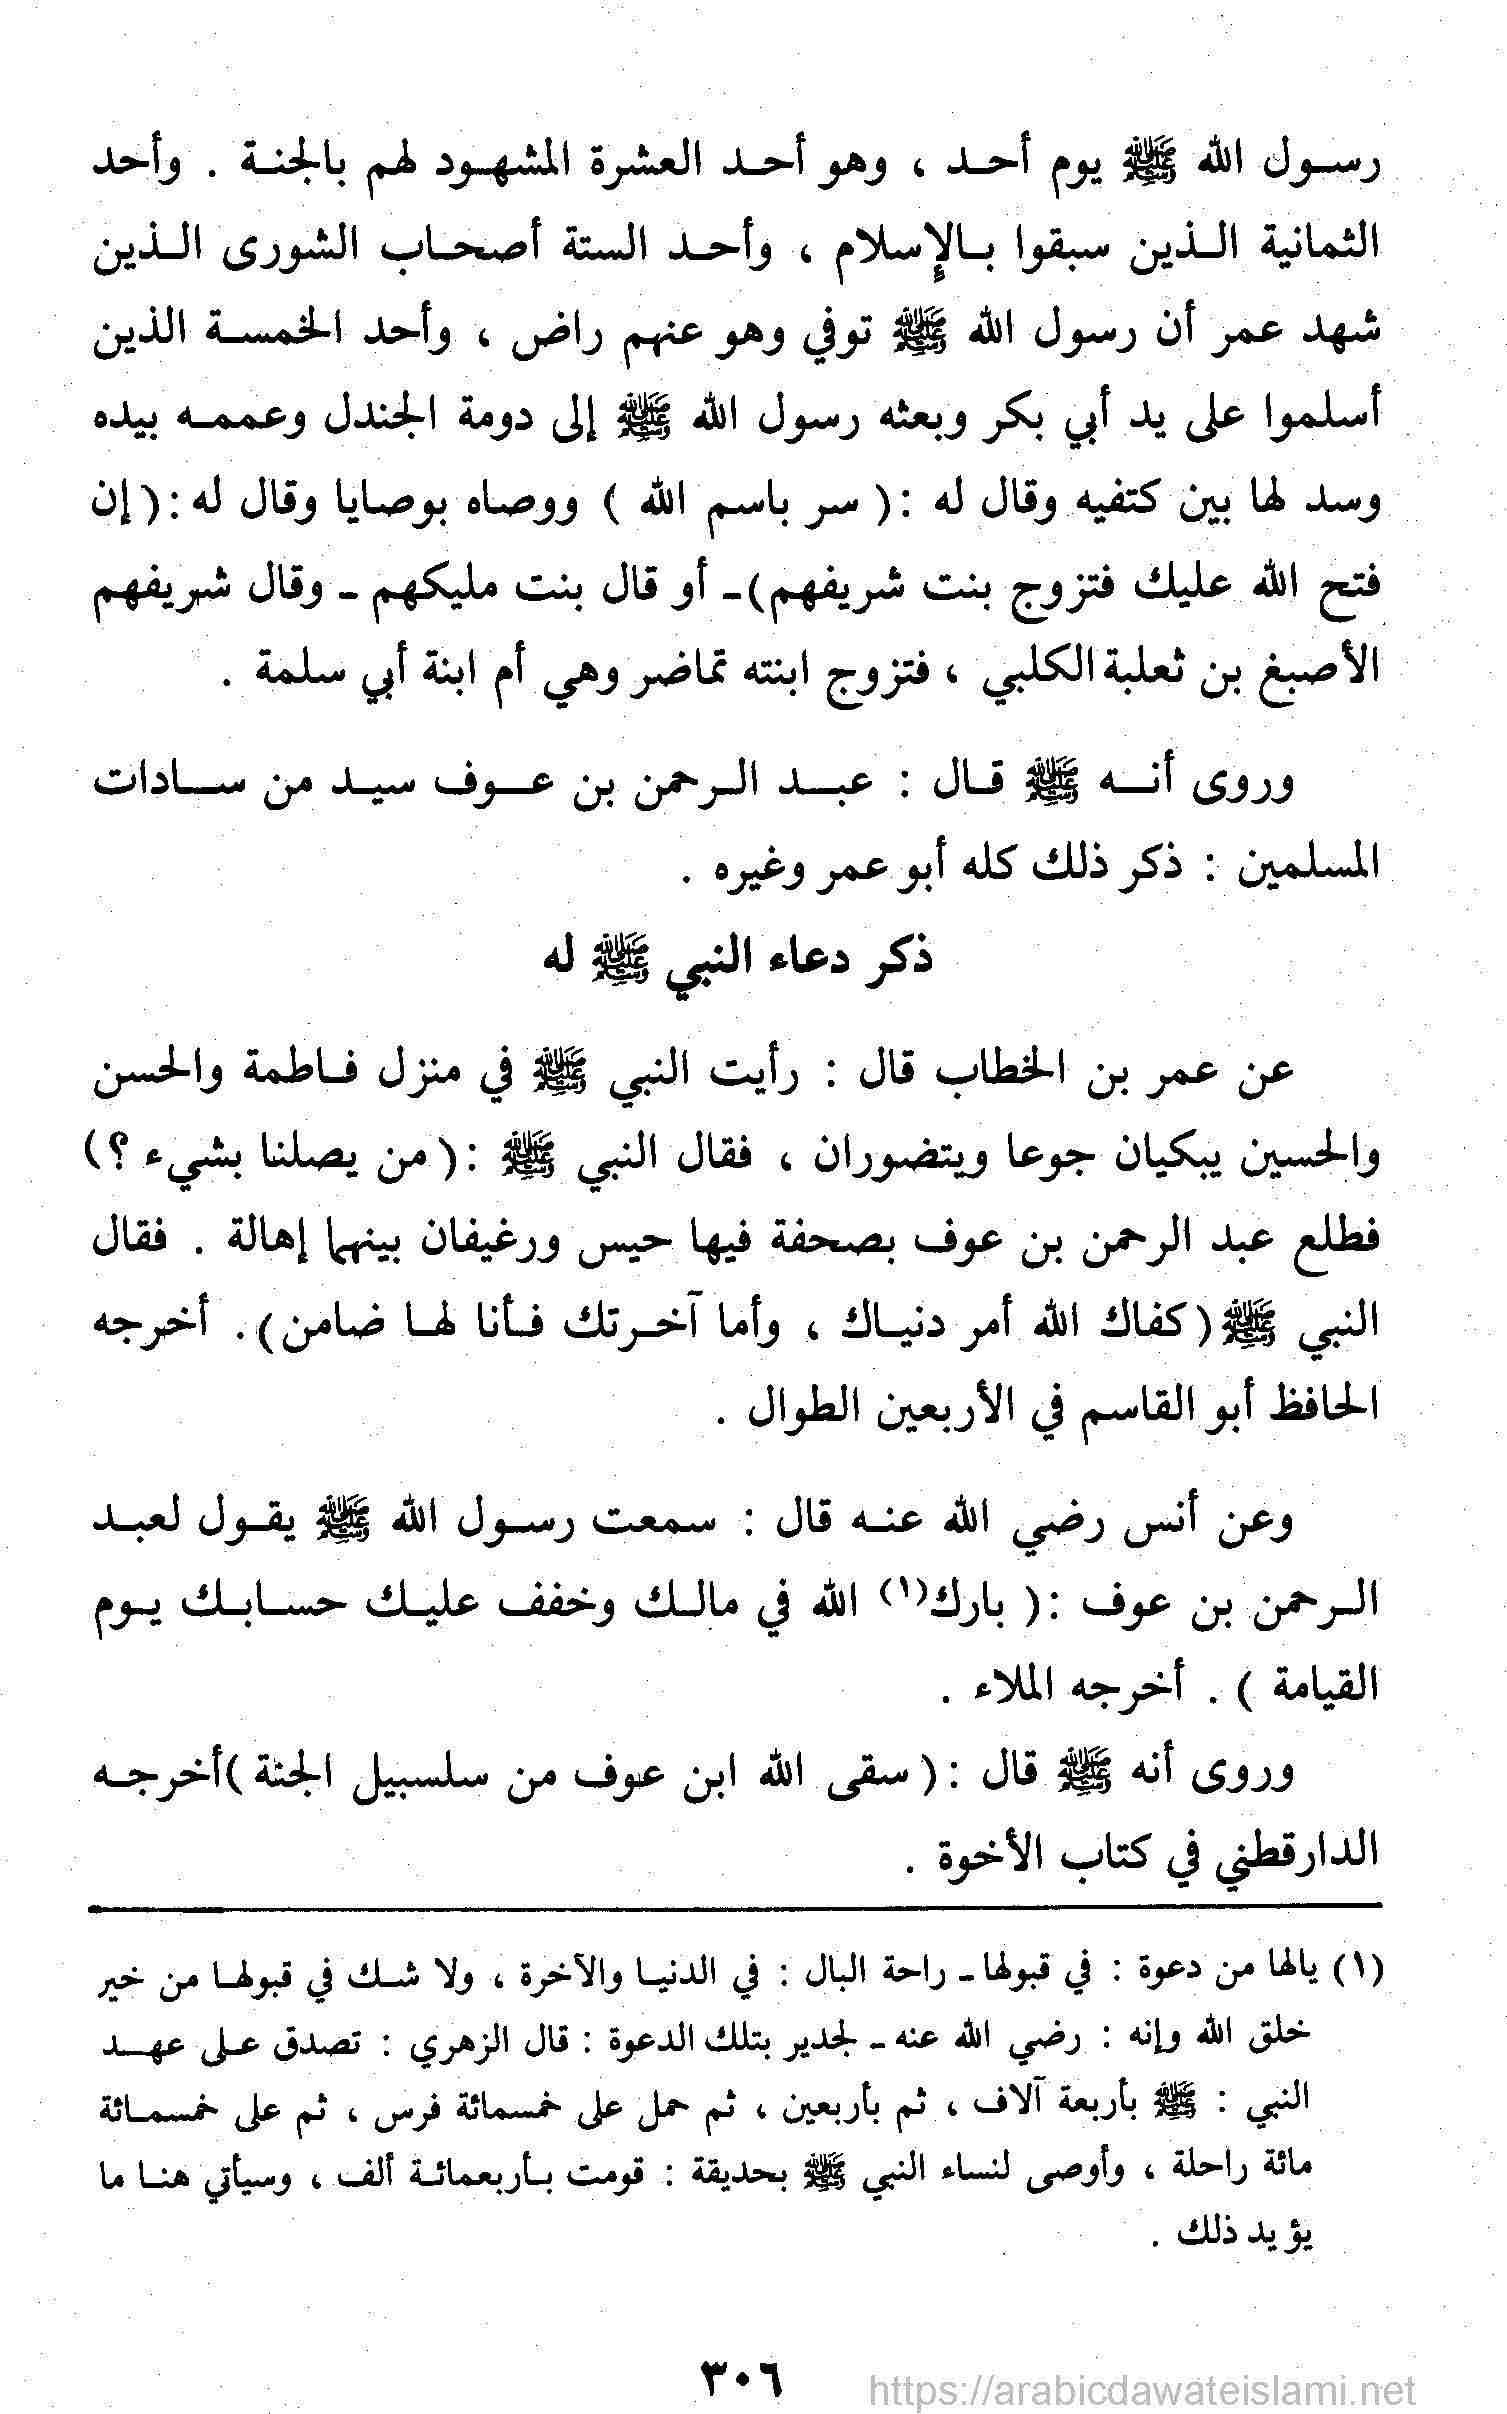 رسول الله ﷺ يوم أحد ، وهو أحد العشرة المشهود لهم بالجنة . وأحد
الثمانية الذين سبقوا بالإسلام ، وأحد الستة أصحاب الشورى الذين
شهد عمر أن رسول الله ﷺ توفي وهو عنهم راض ، وأحد الخمسة الذين
أسلموا على يد أبي بكر وبعثه رسول الله ﷺ إلى دومة الجندل وعممه بيده
وسد لها بين كتفيه وقال له :( سر باسم الله ) ووصاه بوصايا وقال له :( إن
فتح الله عليك فتزوج بنت شريفهم)ـ أو قال بنت مليكهم ـ وقال شريفهم
الأصبغ بن ثعلبة الكلبي ، فتزوج ابنته تماضر وهي أم ابنة أبي سلمة .
وروى أنه ﷺ قال : عبد الرحمن بن عوف سيد من سادات
المسلمين : ذكر ذلك كله أبو عمر وغيره .
ذكر دعاء النبي ﷺ له
عن عمر بن الخطاب قال : رأيت النبي ﷺ في منزل فاطمة والحسن
والحسين يبكيان جوعا ويتضوران ، فقال النبي ﷺ :( من يصلنا بشيء ؟)
فطلع عبد الرحمن بن عوف بصحفة فيها حيس ورغيفان بينهما إهالة . فقال
النبي ﷺ ( كفاك الله أمر دنياك ، وأما آخرتك فأنا لها ضامن) . أخرجه
الحافظ أبو القاسم في الأربعين الطوال .
وعن أنس رضي الله عنه قال : سمعت رسول الله ﷺ يقول لعبد
الرحمن بن عوف :( بارك(١) الله في مالك وخفف عليك حسابك يوم
القيامة ) . أخرجه الملاء .
وروى أنه ﷺ قال :( سقى الله ابن عوف من سلسبيل الجنة )أخرجه
الدارقطني في كتاب الأخوة .
(١) يالها من دعوة : في قبولها ـ راحة البال : في الدنيا والآخرة ، ولا شك في قبولها من خير
خلق الله وإنه : رضي الله عنه ـ لجدير بتلك الدعوة : قال الزهري : تصدق على عهد
النبي : ﷺ بأربعة آلاف ، ثم بأربعين ، ثم حمل على خمسمائة فرس ، ثم على خمسمائة
مائة راحلة ، وأوصى لنساء النبي ﷺ بحديقة : قومت بأربعمائة ألف ، وسيأتي هنا ما
يؤيد ذلك .
٣٠٦
https://arabicdawateislami.net